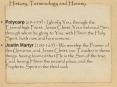 History, Terminology and Heresy
• Polycarp (69-155): I glorify You, through the
eternal high Priest, Jesus Christ, Your beloved Son,
through whom be glory to You, with Him in the Holy
Spirit, both now and forevermore.
• Justin Martyr (100-165): We worship the Framer of
this Universe, and Jesus Christ, our Teacher in these
things, having learned that He is the Son of the true
God, having Him in the second place, and the
Prophetic Spirit in the third rank.